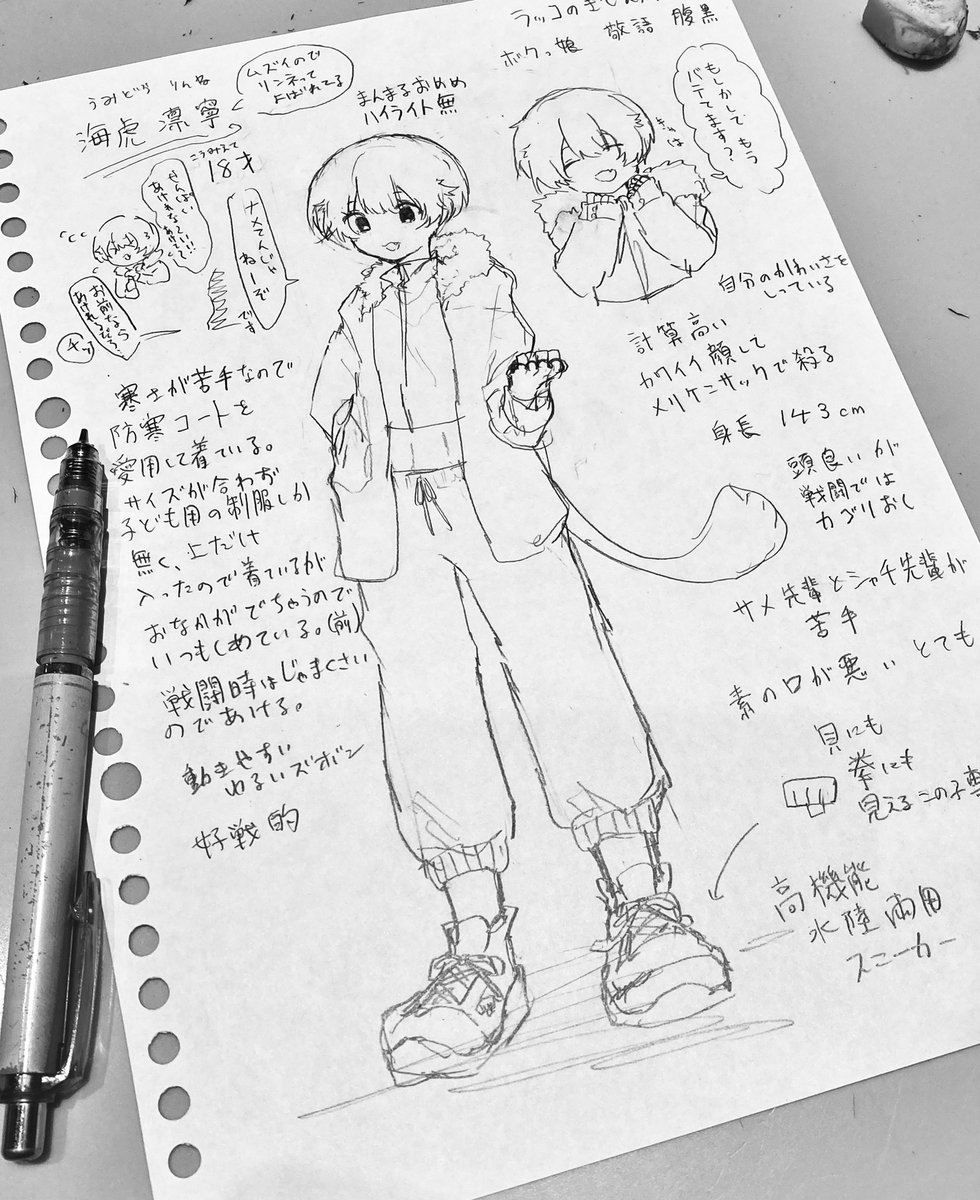 ラッコのぎじん
ボクっ娘 敬語 腹黒
うみどら りんね
海虎 凛寧
ムズイので
リンネって
よばれてる
まんまるおめめ
ハイライト無
こうみえて
18才
ナメてんじゃ
ねーぞ
です
せんぱい
お前なら
チッ
もしかして もう
バテてます？
きゃは
自分のかわいさを
しっている
計算高い
カワイイ顔して
メリケンサックで殺る
身長 143cm
頭良いが
戦闘では
カゴリおし
サメ先輩とシャチ先輩が
苦手
素の口が悪い とても
貝にも
拳にも
見えるこの子専
高機能
水陸両用
スニーカー
寒さが苦手なので
防寒コートを
愛用して着ている。
サイズが合わず
子ども用の制服しか
無く、上だけ
入ったので着ているが
おなかがでちゃうので
いつもしめている。(前)
戦闘時はじゃまくさい
のであける。
動きやすい
ゆるいズボン
好戦的